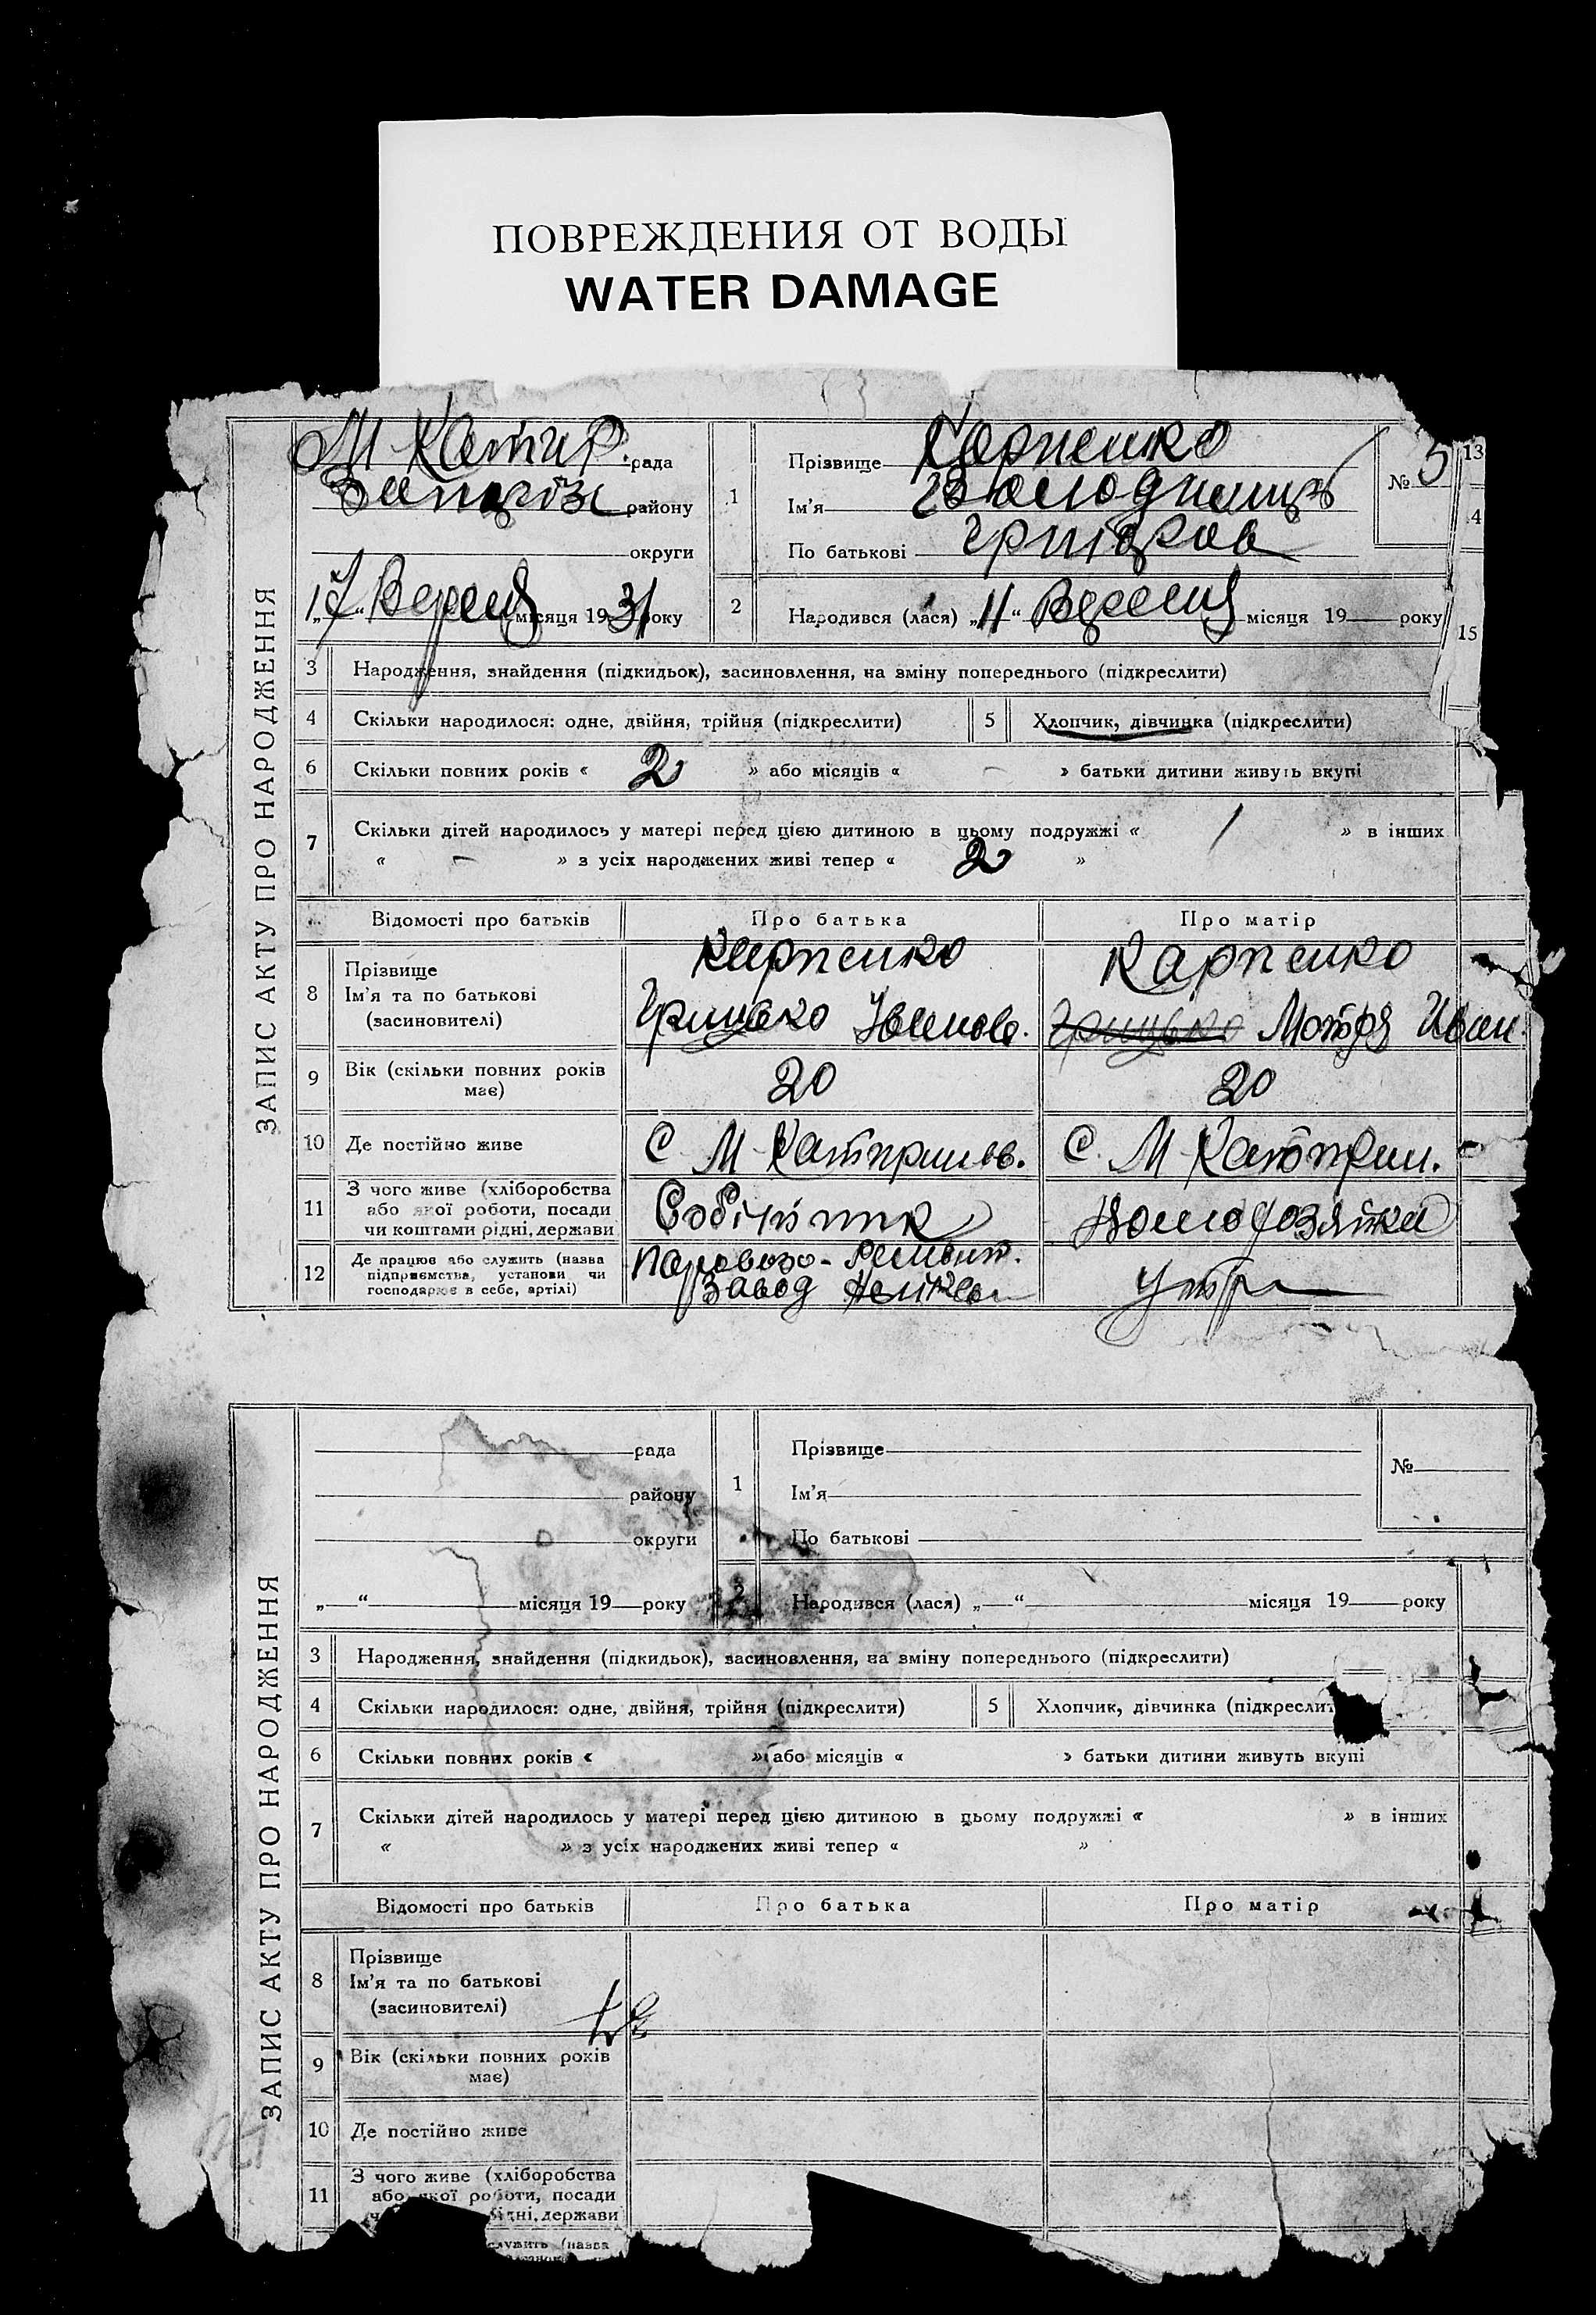 ПОВРЕЖДЕНИЯ ОТ ВОДЫ
WATER DAMAGE
ЗАПИС АКТУ ПРО НАРОДЖЕННЯ
М Катир. рада
району
округи
„17“ Вересня місяця 1931 року
1
Прізвище Карпенко
Ім'я Володимир
По батькові
№ 5
13
4
15
2
Народився (лася) „11“ Вересня місяця 19 року
3 Народження, знайдення (підкидьок), засиновлення, на зміну попереднього (підкреслити)
4 Скільки народилося: одне, двійня, трійня (підкреслити) 5 Хлопчик, дівчинка (підкреслити)
6 Скільки повних років « 2 » або місяців « – » батьки дитини живуть вкупі
7 Скільки дітей народилось у матері перед цією дитиною в цьому подружжі « 1 » в інших
« – » з усіх народжених живі тепер « 2 »
Відомості про батьків Про батька Про матір
8 Прізвище Карпенко Карпенко
Ім'я та по батькові Грицько Іванов. Грицько Мотря Иван.
(засновителі)
9 Вік (скільки повних років має) 20 20
10 Де постійно живе С. М-Катеринов. С. М-Катерин.
11 З чого живе (хліборобства або якої роботи, посади чи коштами рідні, держави Робітник Домохозяйка
12 Де працює або служить (назва підприємства, установи чи господарює в себе, артілі) Паровозо-Ремонт.
Завод
ЗАПИС АКТУ ПРО НАРОДЖЕННЯ
рада
району
округи
„ “ місяця 19 року
1
Прізвище
Ім'я
По батькові
№
2
Народився (лася) „ “ місяця 19 року
3 Народження, знайдення (підкидьок), засиновлення, на зміну попереднього (підкреслити)
4 Скільки народилося: одне, двійня, трійня (підкреслити) 5 Хлопчик, дівчинка (підкреслит
6 Скільки повних років « » або місяців « » батьки дитини живуть вкупі
7 Скільки дітей народилось у матері перед цією дитиною в цьому подружжі « » в інших
« » з усіх народжених живі тепер « »
Відомості про батьків Про батька Про матір
8 Прізвище
Ім'я та по батькові
(засиновителі)
9 Вік (скільки повних років
має)
10 Де постійно живе
11 З чого живе (хліборобства
або якої роботи, посади
рідні, держави
служить (назва